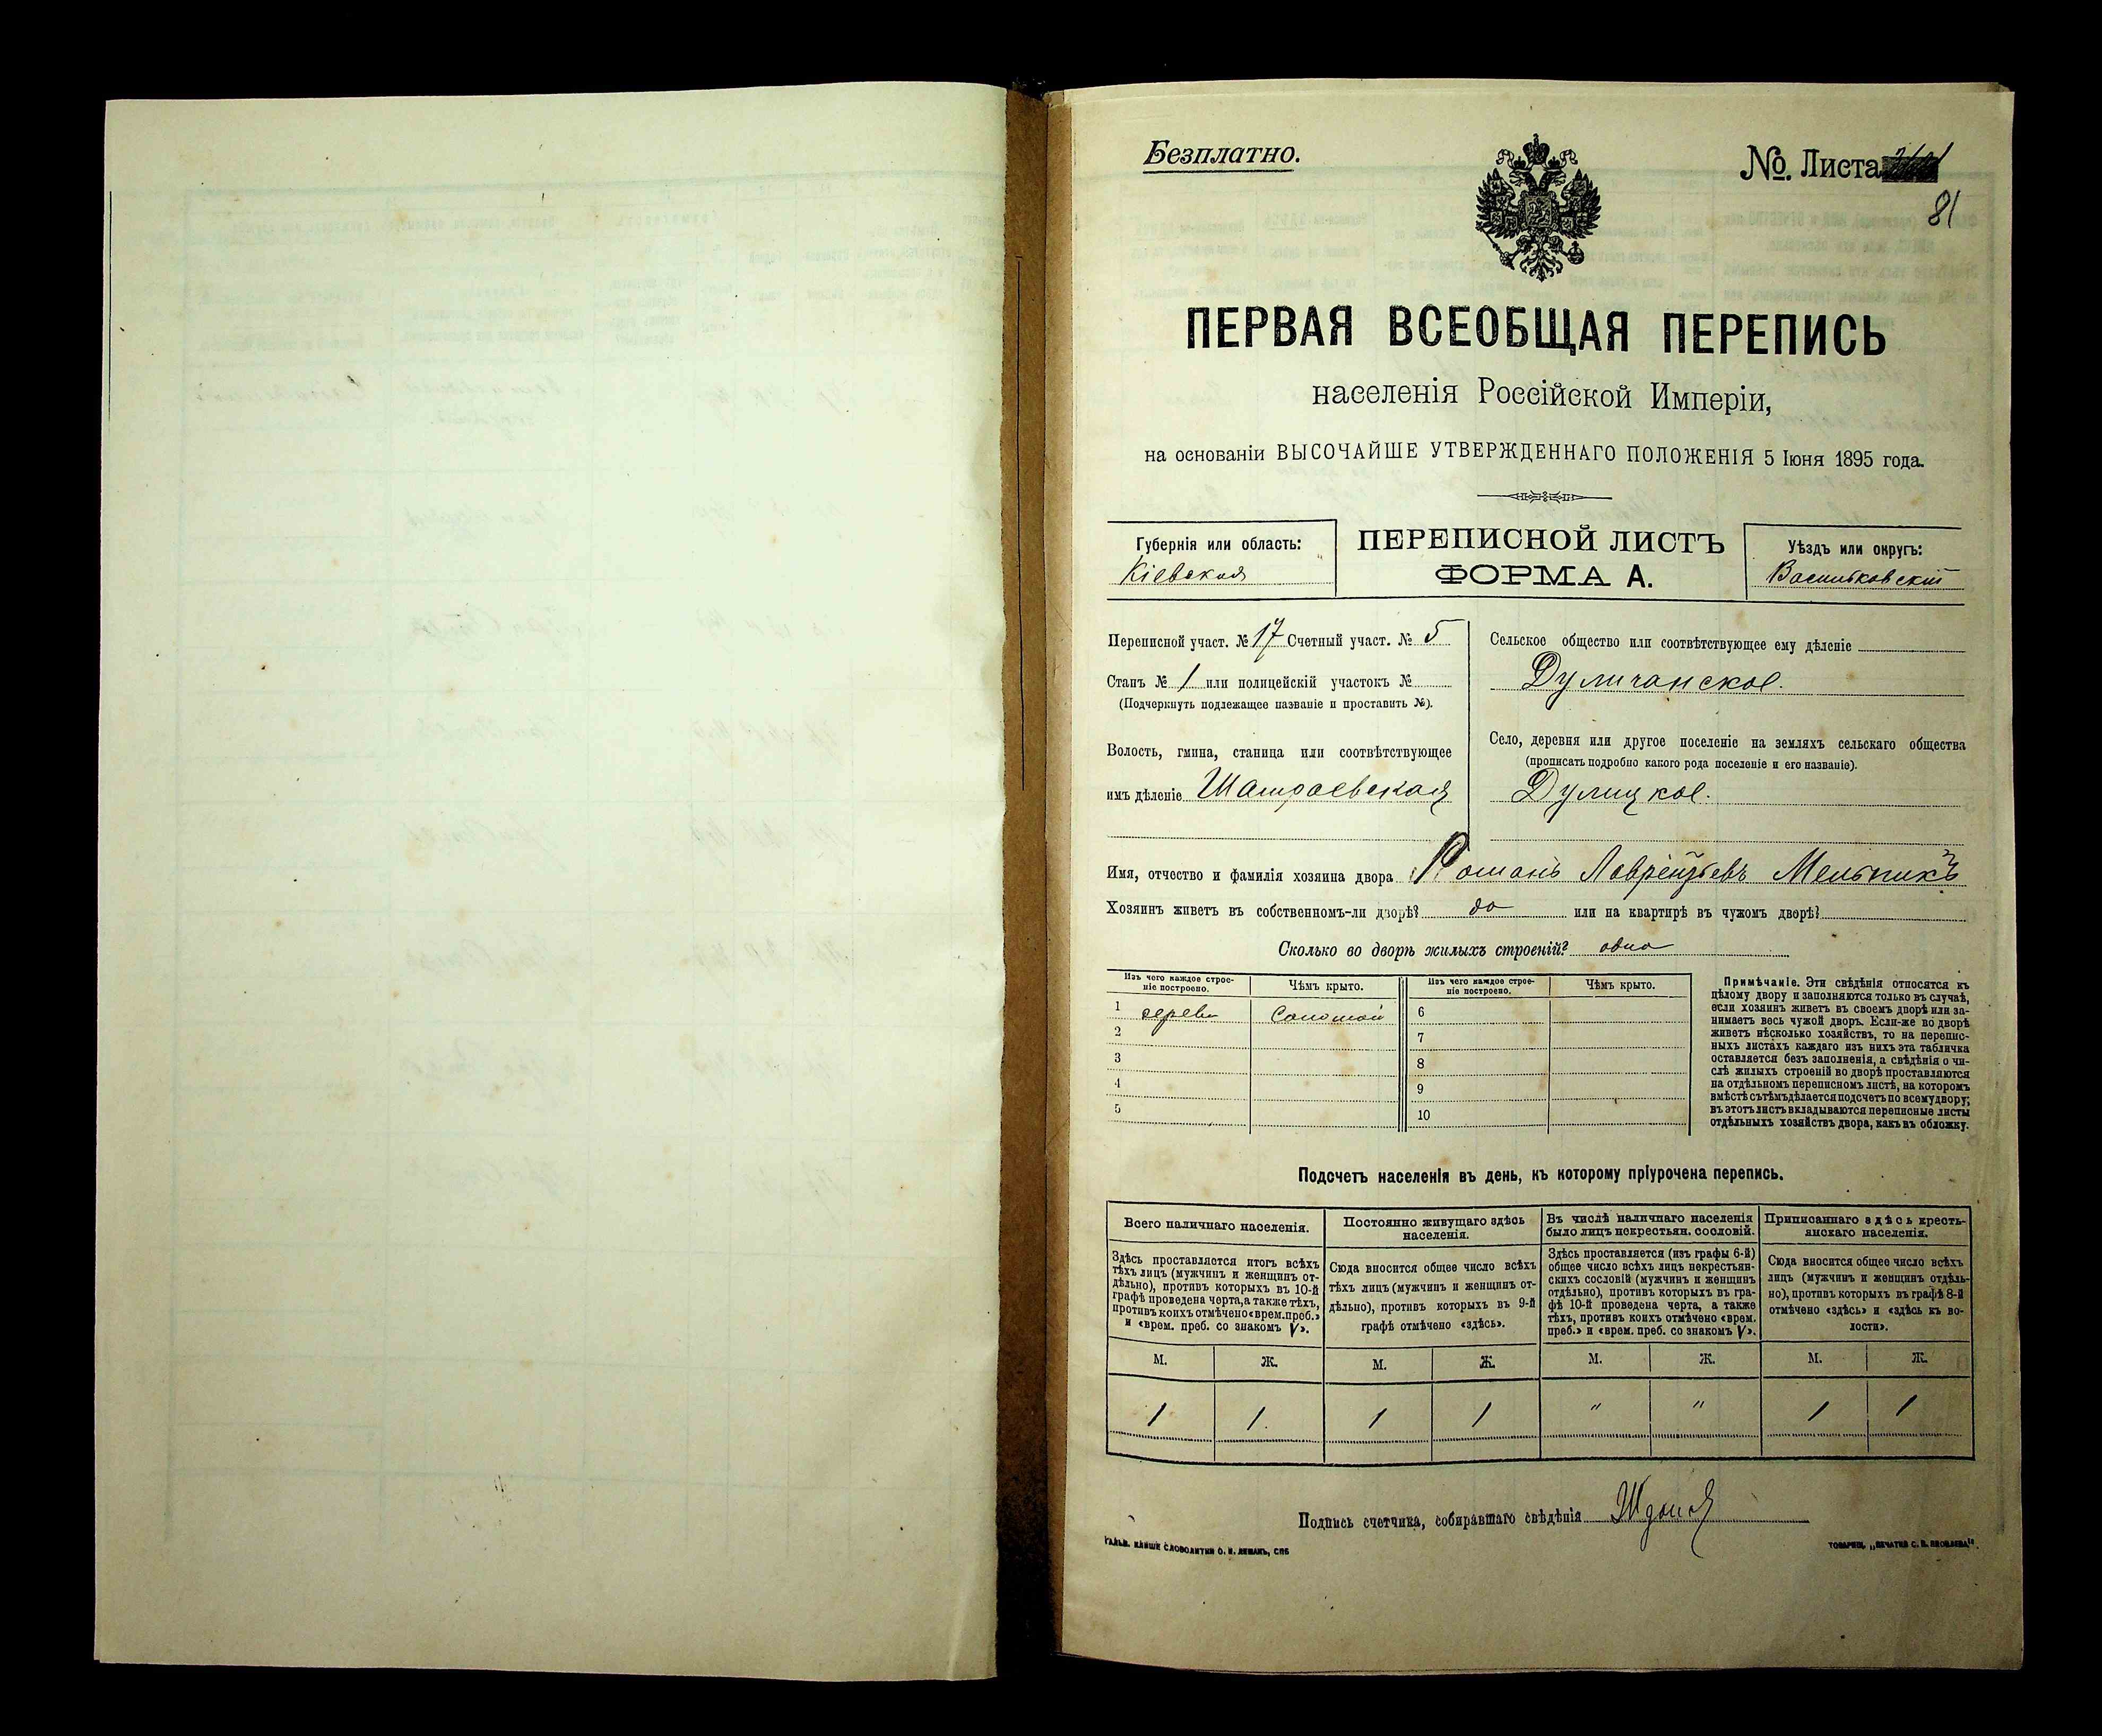 Безплатно.
№. Листа
81
ПЕРВАЯ ВСЕОБЩАЯ ПЕРЕПИСЬ
населенія Россійской Имперіи,
на основаніи ВЫСОЧАЙШЕ УТВЕРЖДЕННАГО ПОЛОЖЕНІЯ 5 Іюня 1895 года.
Губернія или область:
Кіевская
ПЕРЕПИСНОЙ ЛИСТЪ
ФОРМА А.
Уѣздъ или округъ:
Васильковскій
Переписной участ. № 17 Счетный участ. № 5
Станъ № 1 или полицейскій участокъ №
(Подчеркнуть подлежащее названіе и проставить №).
Волость, гмина, станица или соотвѣтствующее
имъ дѣленіе Шамраевская
Сельское общество или соотвѣтствующее ему дѣленіе
Дуличанское.
Село, деревня или другое поселеніе на земляхъ сельскаго общества
(прописать подробно какого рода поселеніе и его названіе).
Дулицкое.
Имя, отчество и фамилія хозяина двора Романъ Лаврентьевъ Мельникъ
Хозяинъ живетъ въ собственномъ-ли дворѣ? да или на квартирѣ въ чужомъ дворѣ?
Сколько во дворѣ жилыхъ строеній? одно
Изъ чего каждое строе-
ніе построено.
Чѣмъ крыто.
Изъ чего каждое строе-
ніе построено.
Чѣмъ крыто.
1 дерева Соломой 6
2 7
3 8
4 9
5 10
Примѣчаніе. Эти свѣдѣнія относятся къ
цѣлому двору и заполняются только въ случаѣ,
если хозяинъ живетъ въ своемъ дворѣ или за-
нимаетъ весь чужой дворъ. Если-же во дворѣ
живетъ нѣсколько хозяйствъ, то на перепис-
ныхъ листахъ каждаго изъ нихъ эта табличка
оставляется безъ заполненія, а свѣдѣнія о чи-
слѣ жилыхъ строеній во дворѣ проставляются
на отдѣльномъ переписномъ листѣ, на которомъ
вмѣстѣ съ тѣмъ дѣлается подсчетъ по всему двору;
въ этотъ листъ вкладываются переписные листы
отдѣльныхъ хозяйствъ двора, какъ въ обложку.
Подсчетъ населенія въ день, къ которому пріурочена перепись.
Всего наличнаго населенія.
Здѣсь проставляется итогъ всѣхъ
тѣхъ лицъ (мужчинъ и женщинъ от-
дѣльно), противъ которыхъ въ 10-й
графѣ проведена черта, а также тѣхъ,
противъ коихъ отмѣчено «врем. преб.»
и «врем. преб. со знакомъ V».
Постоянно живущаго здѣсь
населенія.
Сюда вносится общее число всѣхъ
тѣхъ лицъ (мужчинъ и женщинъ от-
дѣльно), противъ которыхъ въ 9-й
графѣ отмѣчено «здѣсь».
Въ числѣ наличнаго населенія
было лицъ некрестьян. сословій.
Здѣсь проставляется (изъ графы 6-й)
общее число всѣхъ лицъ некрестьян-
скихъ сословій (мужчинъ и женщинъ
отдѣльно), противъ которыхъ въ гра-
фѣ 10-й проведена черта, а также
тѣхъ, противъ коихъ отмѣчено «врем.
преб.» и «врем. преб. со знакомъ V».
Приписаннаго здѣсь кресть-
янскаго населенія.
Сюда вносится общее число всѣхъ
лицъ (мужчинъ и женщинъ отдѣль-
но), противъ которыхъ въ графѣ 8-й
отмѣчено «здѣсь» и «здѣсь къ во-
лости».
М. Ж. М. Ж. М. Ж. М. Ж.
1 1. 1 1 " " 1 1
Подпись счетчика, собиравшаго свѣдѣнія
ГАЛЬВ. КЛИШЕ СЛОВОЛИТНИ О. И. ЛЕМАНЪ, СПБ
ТОВАРИЩ. „ПЕЧАТНЯ С. П. ЯКОВЛЕВА".